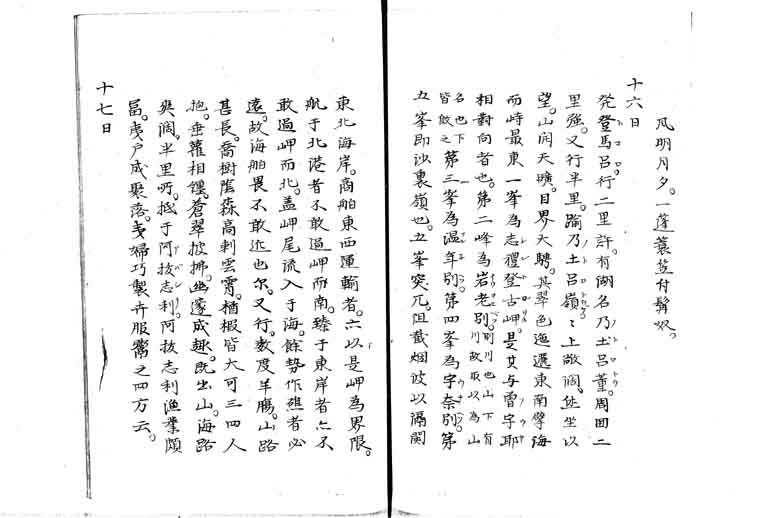 風明月夕。一蓬蓑笠付舁吸。
十六日
発登馬呂行二里許。有湖名乃土呂董。周囬二
里強。又行半里。踰乃土呂嶺。々上敞濶。坐以
望。山闊天曠。目界大騁。其翠色迤邐東南擘海
而峙最東一峯為志禮登古岬。是其与曽宇耶
相對向者也。第二峰為岩老別。別川也山下有川故取以為山
名也下皆倣之第三峯為温年別。第四峯為宇奈別。第
五峯即沙裏嶺也。五峯突兀。阻截烟波以隔閡
東北海岸。商舶東西運輸者。亦以是岬為界限。
航于北港者不敢過岬而南。臻于東岸者亦不
敢過岬而北。盖岬尾流入于海。餘勢作礁者必
遠。故海舶畏不敢近也尓。又行。数度羊腸。山路
甚長。喬樹蔭森高刺雲霄。楢椴皆大可三四人
抱。垂蘿相纆。蒼翠披拂。幽邃成趣。既出山。海路
爽濶。半里所。抵于阿抜志利。阿抜志利漁業頗
冨。夷戸成聚落。夷婦巧製卉服鬻之四方云。
十七日